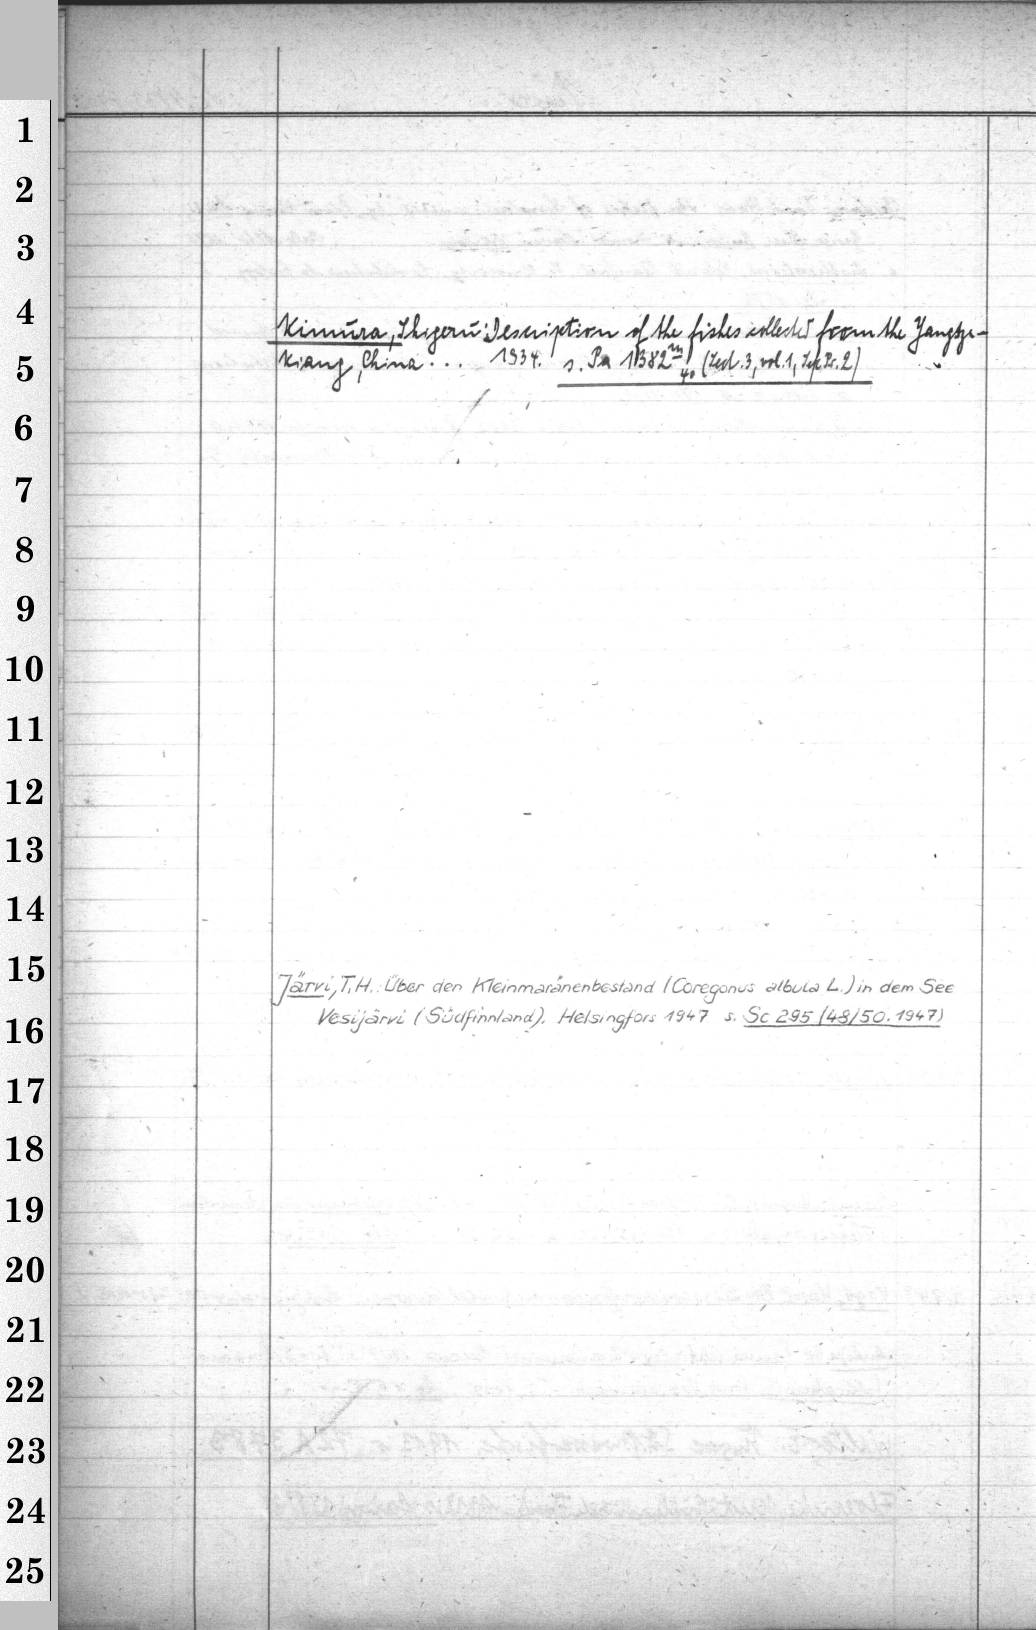 1
2
3
4
Kimura, Shigeru: Description of the fishes collected from the Yangtze-
5
Kiang, China... 1934. s. Pa 11382 m/40 (Sect. 3, vol. 1, Sep. Nr. 2)
6
7
8
9
10
11
12
13
14
15
Järvi, T. H.: Über den Kleinmaränenbestand (Coregonus albula L.) in dem See
16
Vesijärvi (Südfinnland). Helsingfors 1947 s. Sc 295 (48/50. 1947)
17
18
19
20
21
22
23
24
25